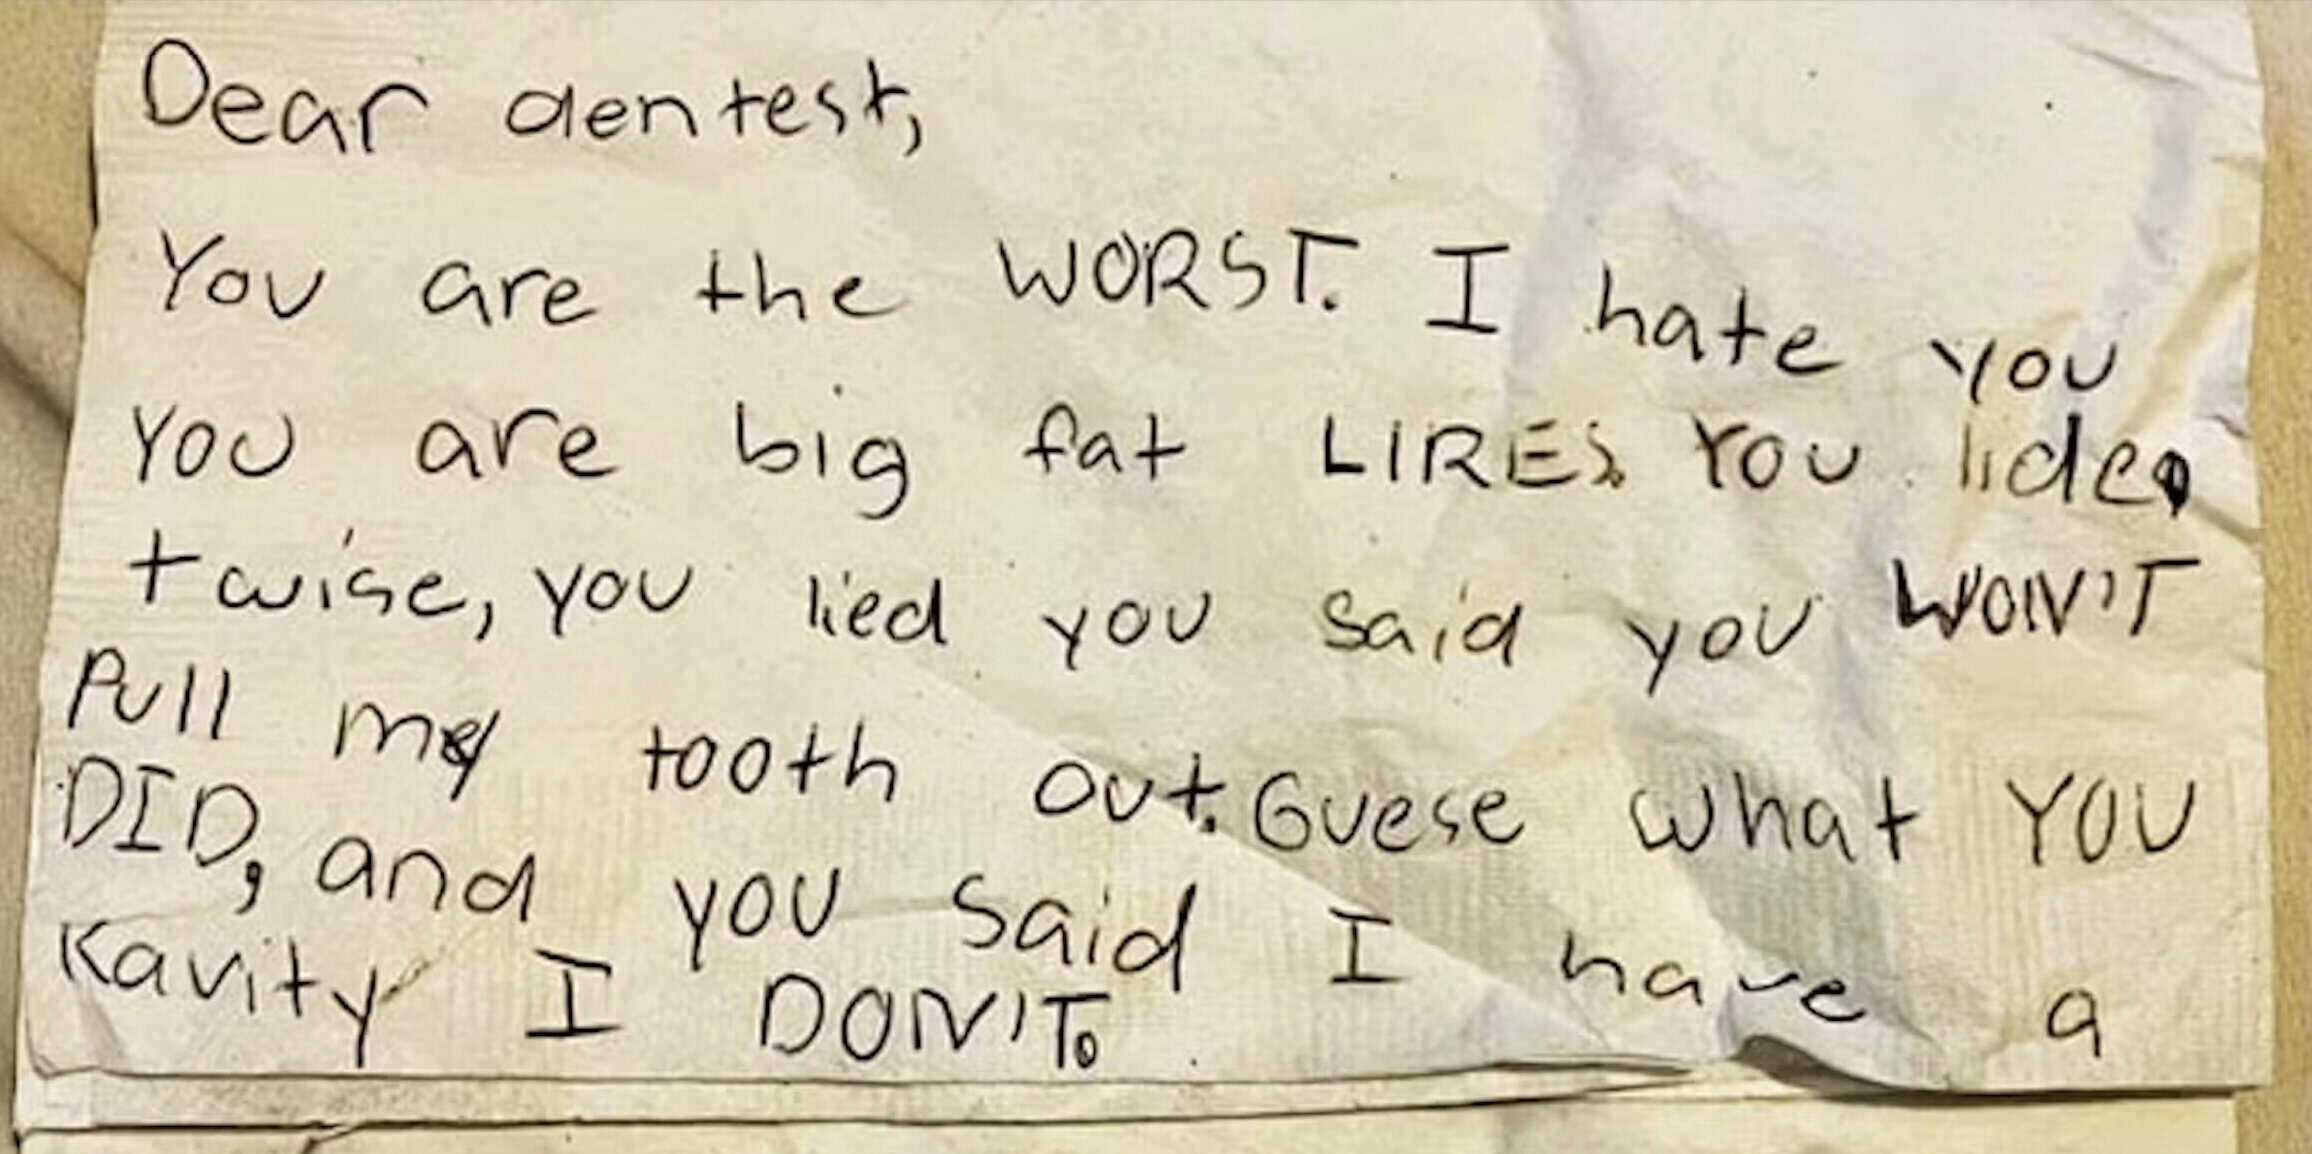 Dear dentest,
You are the WORST. I hate you
You are big fat LIRES. You lide
twise, you lied you said you WON'T
Pull my tooth out. Guese what YOU
DID, and you said I have a
Kavity I DON'T.